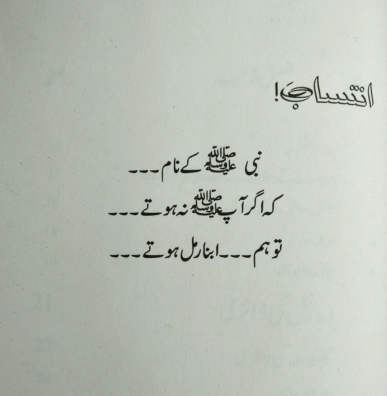 انتساب!
نبی ﷺ کے نام۔۔۔
کہ اگر آپ ﷺ نہ ہوتے۔۔۔
تو ہم۔۔۔ ابنارمل ہوتے۔۔۔